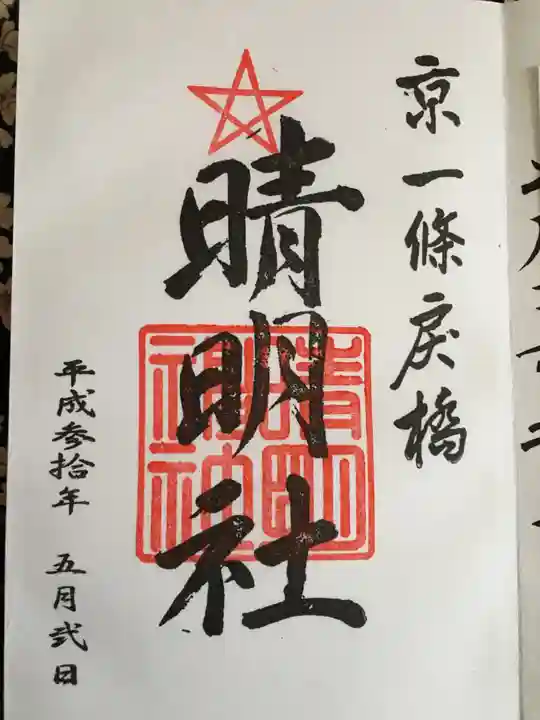 京一條戻橋
晴明社
晴明
神社
平成参拾年 五月弐日